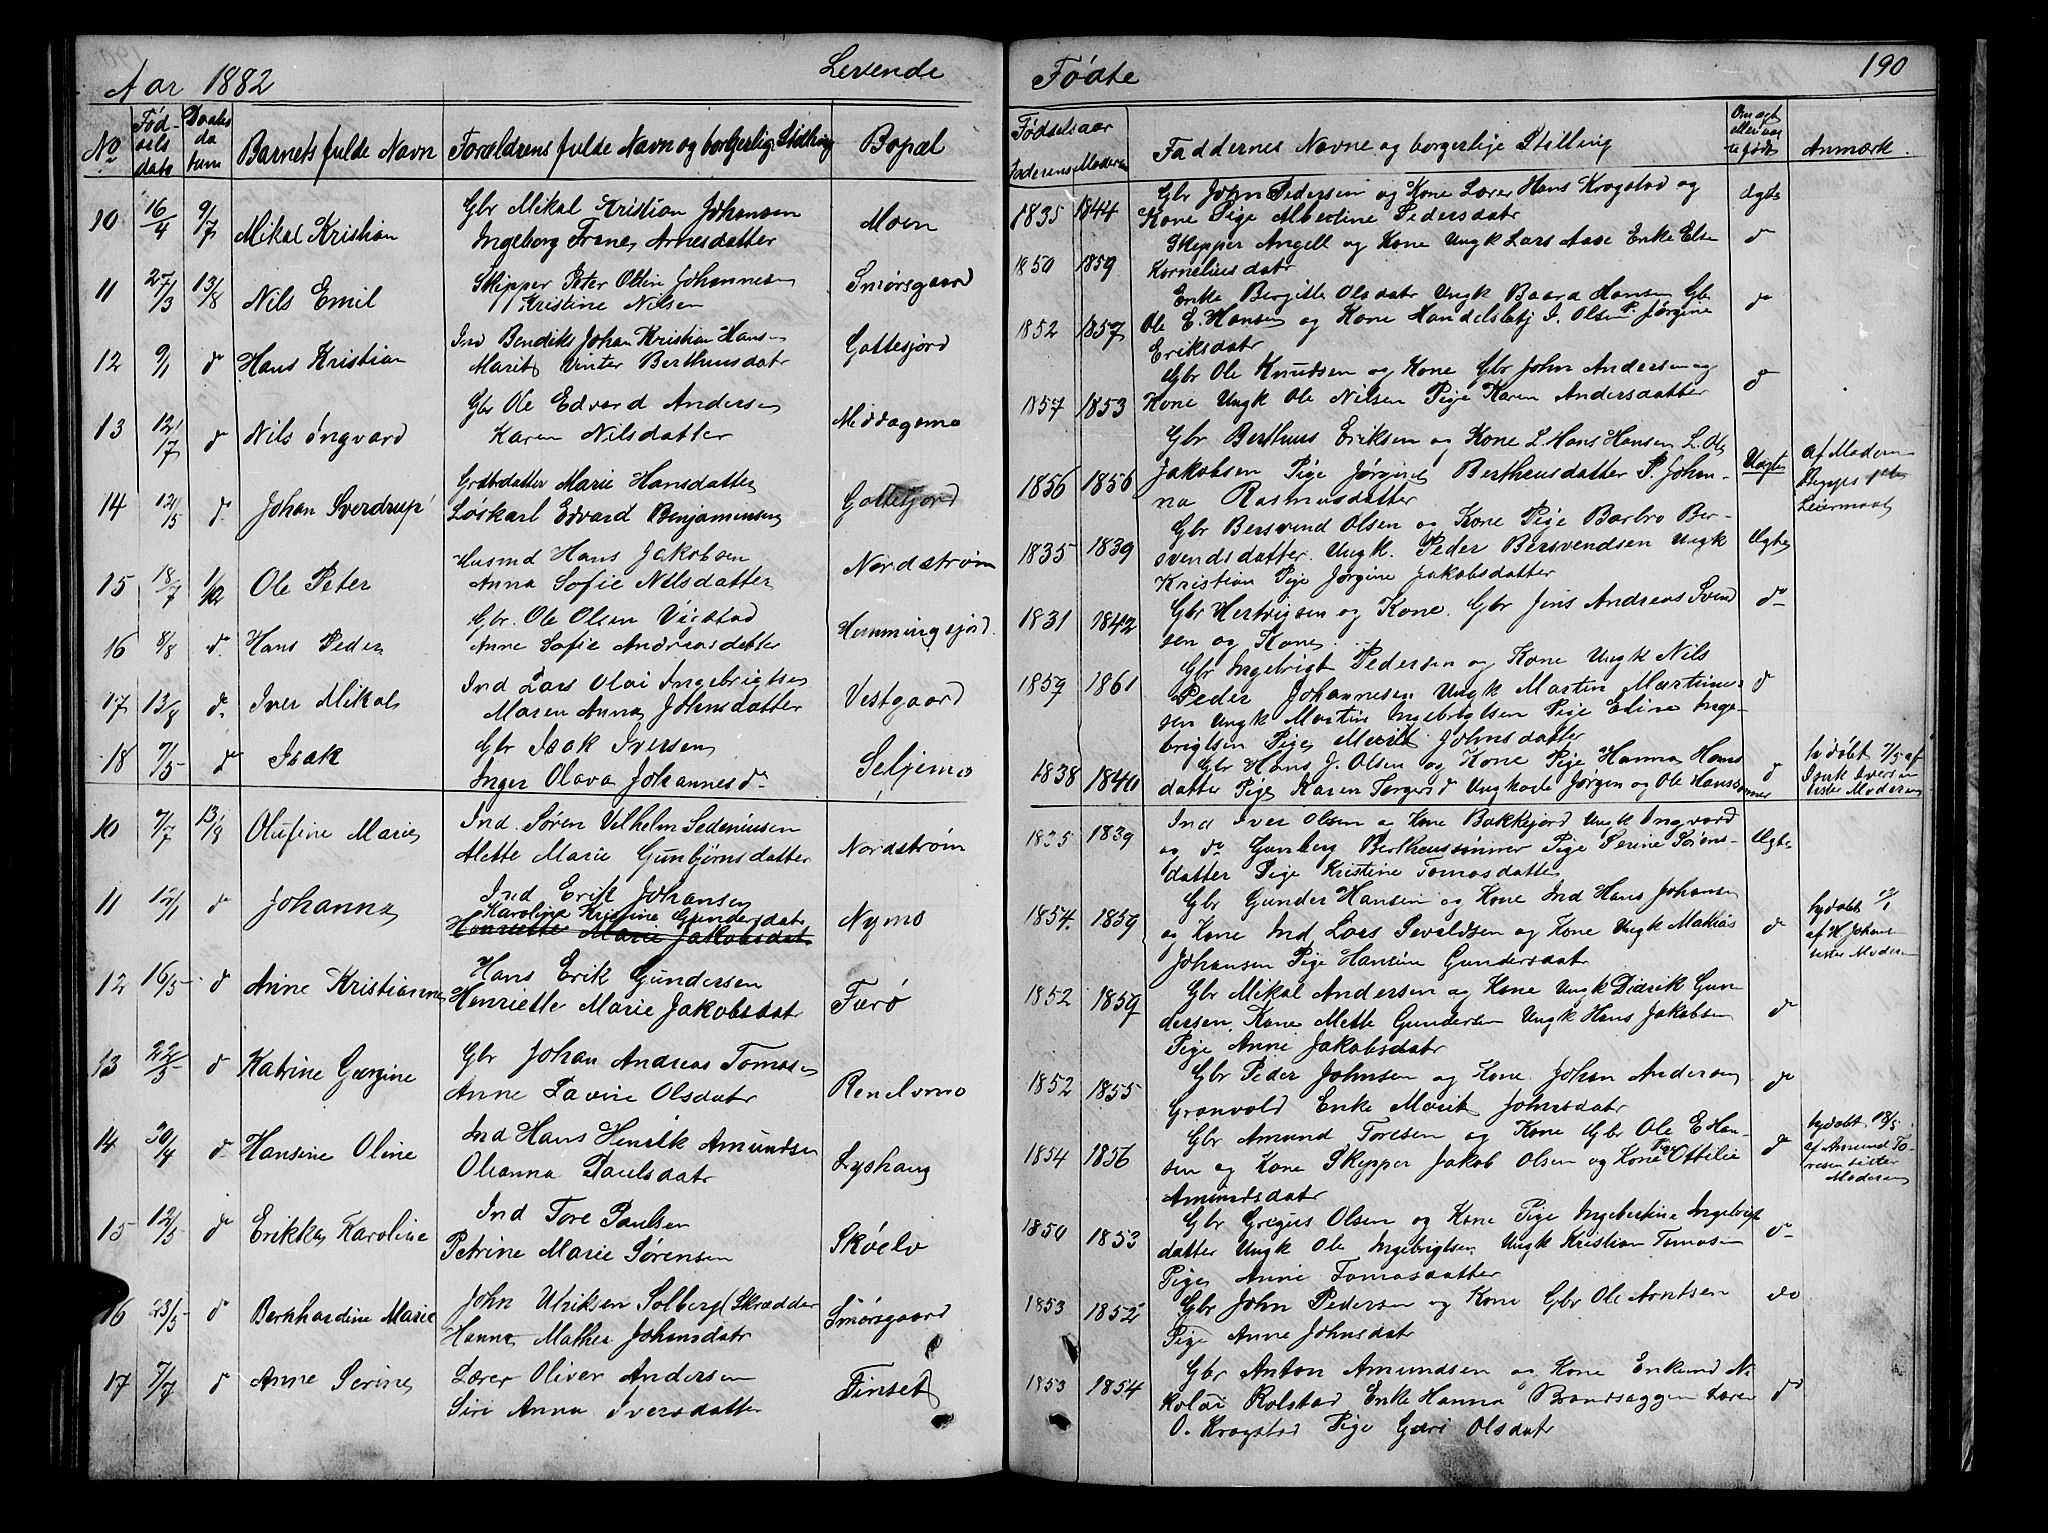 Aar 1882 Levende
No Fødselsdato Daabsdatum Barnets fulde Navn Forældrens fulde Navn og borgerlig Stilling Bopæl
10 16/4 9/7 Mikal Kristian Gbr Mikal Kristian Johansen
Ingeborg Arnesdatter Moen
11 27/3 13/8 Nils Emil Skipper Peter Olsen Johannesen
Kristine Nilsen Smørsgaard
12 9/1 d Hans Kristian Ind Bendiks Johan Kristian Hansen
Marit Vinter Bertheusdatr Gottesjord
13 12/7 d Nils Ingvard Gbr Ole Edvard Andersen
Karen Nilsdatter Middagsmo
14 12/5 d. Johan Sverdrup Grdbrdatter Marie Hansdatter
Løskarl Edvard Benjaminsen Gottesjord
15 18/7 1/10 Ole Peter Husmd Hans Jakobsen
Anna Sofie Nilsdatter Nordstrøm
16 8/8 d. Hans Peder Gbr. Ole Olsen Vigstad
Anne Sofie Andreasdatter Hemmingsjord.
17 13/8 d. Iver Mikal Ind Lars Olai Ingebrigtsen
Maren Anna Johnsdatter Vestgaard
18 7/5 d Isak Gbr Isak Iversen
Inger Olava Johannesd. Seljemo
10 7/7 13/8 Olufine Marie Ind. Søren Vilhelm Sedeniusen
Alette Marie Gunbjørnsdatter Nordstrøm
11 12/1 d Johanna Ind Erik Johansen
Karoline Kristine Gundersdatr
Henriette Marie Jakobsdat Nymo
12 16/5 d Anne Kristianne Hans Erik Gundersen
Henriette Marie Jakobsdatr Farø
13 22/3 d Katrine Gurgine Gbr Johan Andreas Tomasen
Anne Lavine Olsdatr
14 30/4 d Hansine Oline Ind Hans Henrik Amundsen
Oleanna Paulsdatr Lyshaug
15 12/5 d Erikka Karoline Ind Tore Paulsen
Petrine Marie Sørensen Skøelv
16 23/5 d Bernhardine Marie John Ulriksen Solberg (Skrædder
Hanna Mathea Johansdatr Smørsgaard
17 7/7 d Anne Serine Lærer Oliver Andersen
Siri Anna Iversdatter Finset
Fødte 190
Fødselsaar Faderens Moderens Faddernes Navne og borgerlige Stilling Om ægt eller uægte født Anmærk.
Gbr John Pedersen og Kone Lærer Hans Krogstad og
1835 1844 Kone Pige Albertine Pedersdatr Ægte
Skipper Angell og Kone Ungk Lars Aase Enke Else
1850 1859 Korneliusdatr d
Enke Bergitte Olsdatr Ungk Baard Hansen Gbr
1852 1857 Ole E. Hansen og Kone Handelsbetj I. Olsen P. Jørgine d
Eriksdatr
Gbr Ole Knudsen og Kone Gbr John Andersen og
1857 1853 Kone Ungk Ole Nilsen Pige Karen Andersdatter d
Gbr Berthius Eriksen og Kone L. Hans Hansen L. Ole
1856 1856 Jakobsen Pige Jørgine Bertheusdatter P. Johan-
na Rasmusdatter Uægte af Moderen
Begges 1ste
Leiermaal
Gbr Bersvend Olsen og Kone Pige Barbro Ber-
1835 1839 svendsdatter. Ungk. Peder Bersvendsen Ungk Ægte
Kristian Pige Jørgine Jakobsdatter
1831 1842 Gbr Hertvigsen og Kone. Gbr Jens Andreas Svend do
sen og Kone.
Gbr Ingebrigt Pedersen og Kone Ungk Nils
1859 1861 Peder Johannesen Ungk Martin Martine- d
sen Ungk Martin Ingebrigtsen Pige Edine Inge-
brigtsen Pige Marit Johnsdatter
1838 1840 Gbr Hans J. Olsen og Kone Pige Hanna Hans
datter Pige Karen Torgersd Ungkarle Jørgen og Ole Hanssønner d hjdøbt 7/5 af
Isak Iversen
ifster Moderen
Ind Iver Olsen og Kone Bakkejord Ungk Ingvard
1835 1839 og d. Gunberg Bertheussønner Pige Serine Sørens- Ægte
datter Pige Kristine Tomasdatter
Gbr Gunder Hansen og Kone Ind Hans Johansen
1854. 1859 og Kone Ind Lars Sivaldsen og Kone Ungk Matias d hjdøbt
Johansen Pige Hansine Gundersdatr
1852 1859 Gbr Mikal Andersen og Kone Ungk Didrik Gun-
dersen, Kone Mette Gundersen Ungk Hans Jakobsen d
Pige Anne Jakobsdatr
1852 1855 Gbr Peder Johnsen og Kone. Johan Andersen d
Granvold Enke Marit Johnsdatr
Gbr Amund Toresen og Kone Gbr Ole E Han-
1854 1856 sen og Kone Skipper Jakob Olsen og Kone Pige Ottilie d hjdøbt 18/5
af Amund To-
resen
Moderen
Amundsdatr
1850 1853 Gbr Gregus Olsen og Kone Pige Ingebertine Ingebrigt
datter Ungk Ole Ingebrigtsen Ungk Kristian Tomasen d
Pige Anne Tomasdatter
1853 1852 Gbr John Pedersen og Kone Gbr Ole Arntsen do
Pige Anne Johnsdatr
Gbr Anton Amundsen og Kone Enkemd Ni-
1853 1854 kolai Rolstad Enke Hanna Brandsæggen Lærer do
O. Krogstad Pige Guri Olsdatr